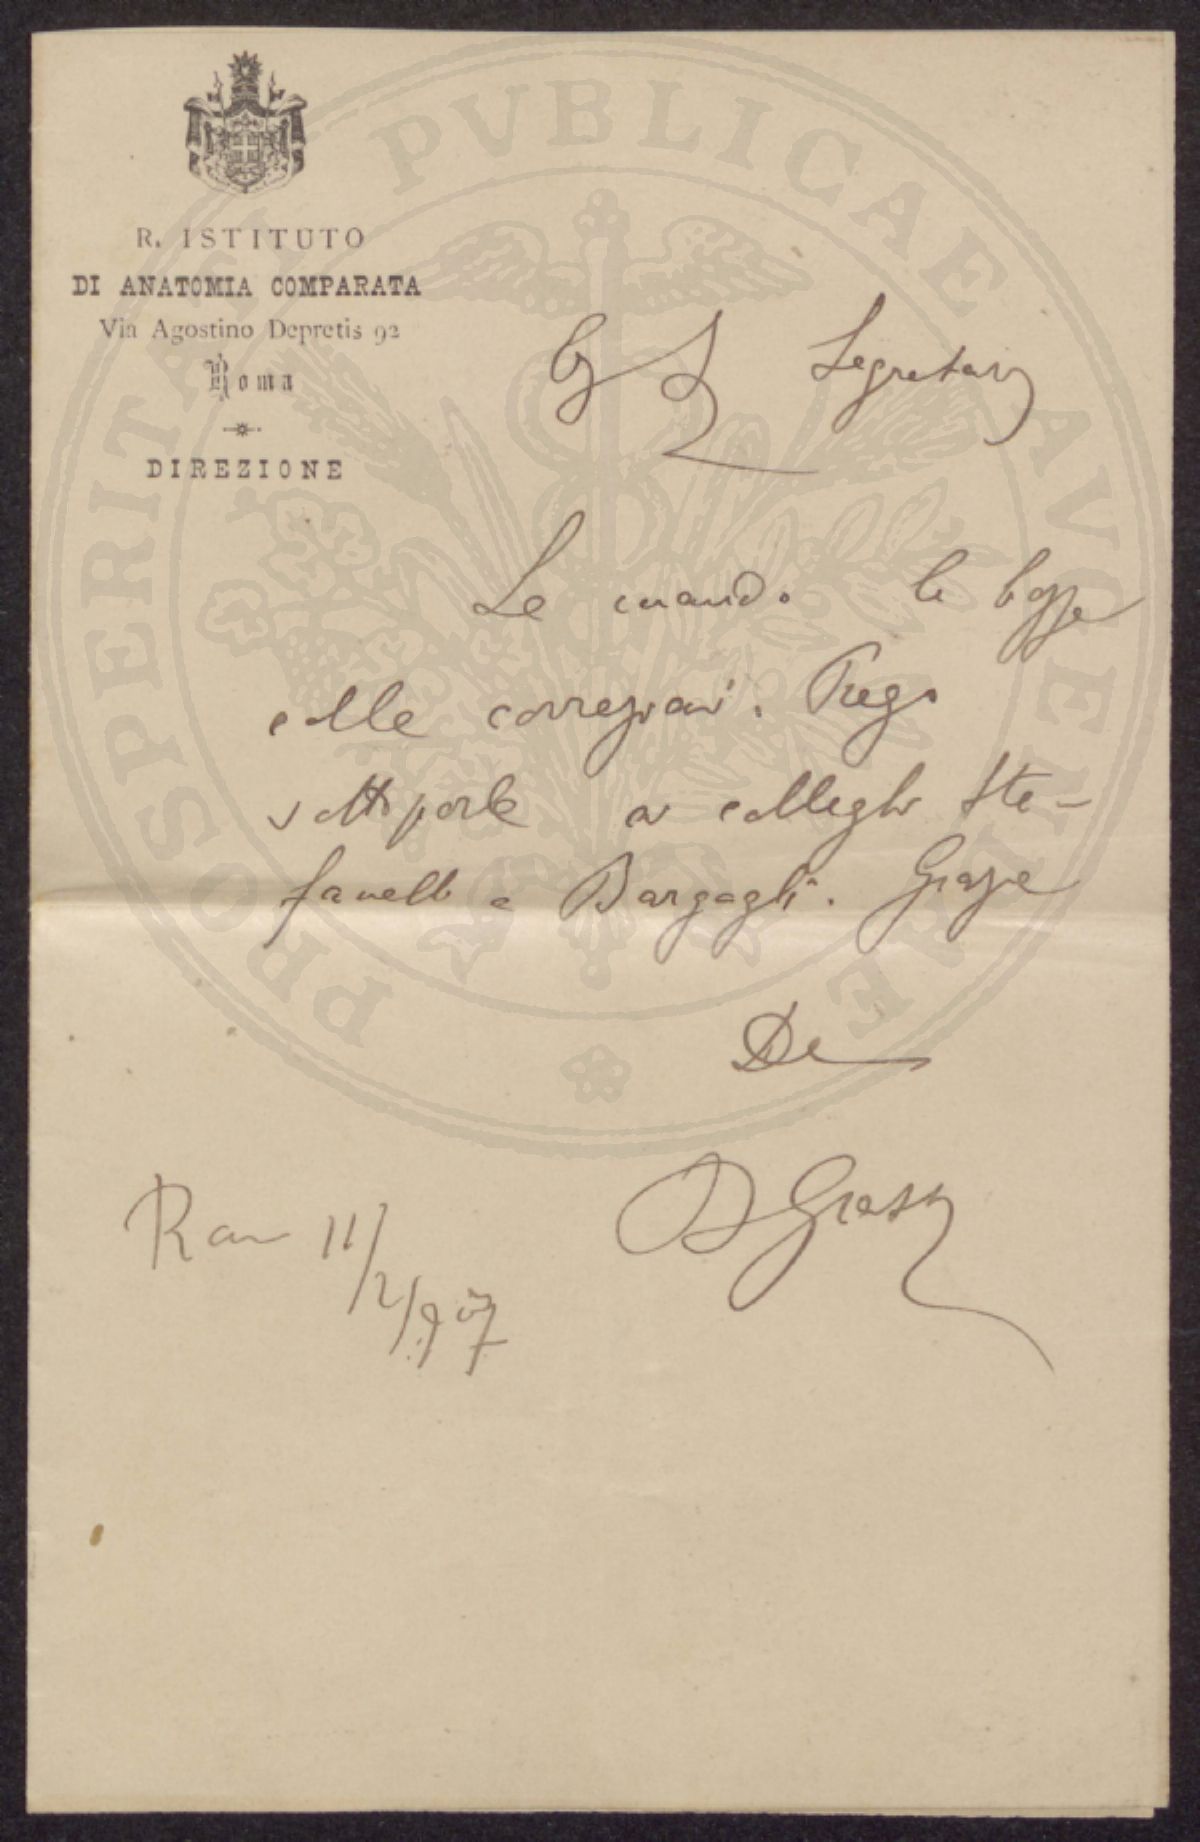 R. ISTITUTO
DI ANATOMIA COMPARATA
Via Agostino Depretis 92
Roma
DIREZIONE
Segretario
Le mando le bozze
colle correzioni. Prego
sottoporle ai colleghi Ste-
fanelli e Bargagli. Grazie
B Grassi
Roma 11/2/907
PROSPERITATI PVBLICAE AVGENDAE